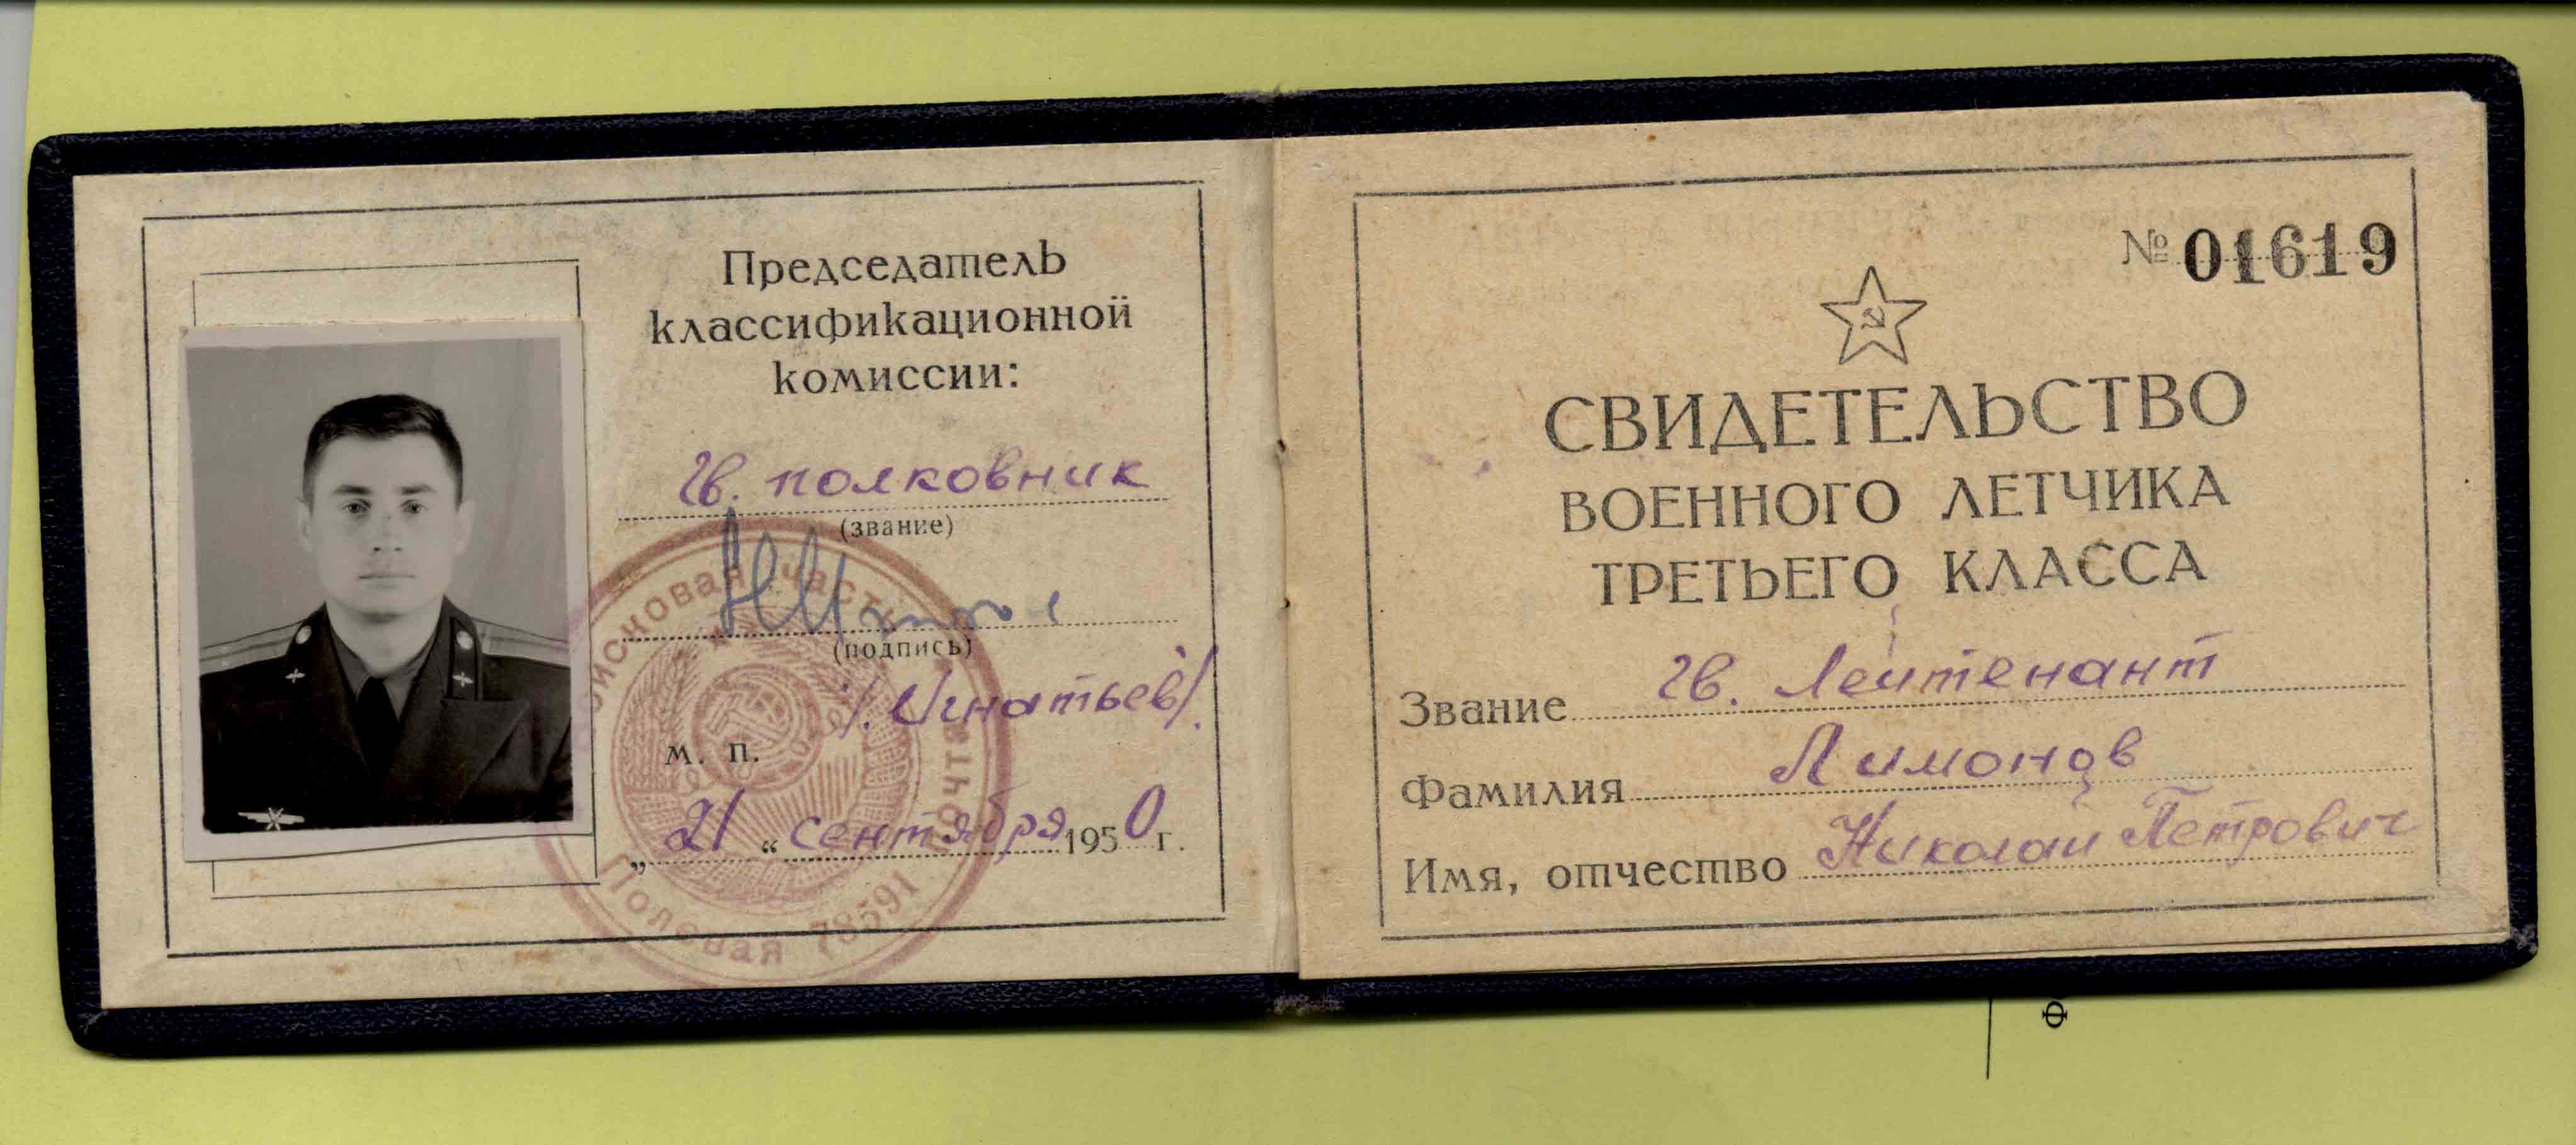 Председатель
классификационной
комиссии:
гв. полковник
(звание)
(подпись)
/Игнатьев/.
м. п.
„21“ сентября 1950 г.
Войсковая часть
почта
Полевая 78591
№ 01619
СВИДЕТЕЛЬСТВО
ВОЕННОГО ЛЕТЧИКА
ТРЕТЬЕГО КЛАССА
Звание гв. Лейтенант
Фамилия Лимонов
Имя, отчество Николай Петрович
Ф